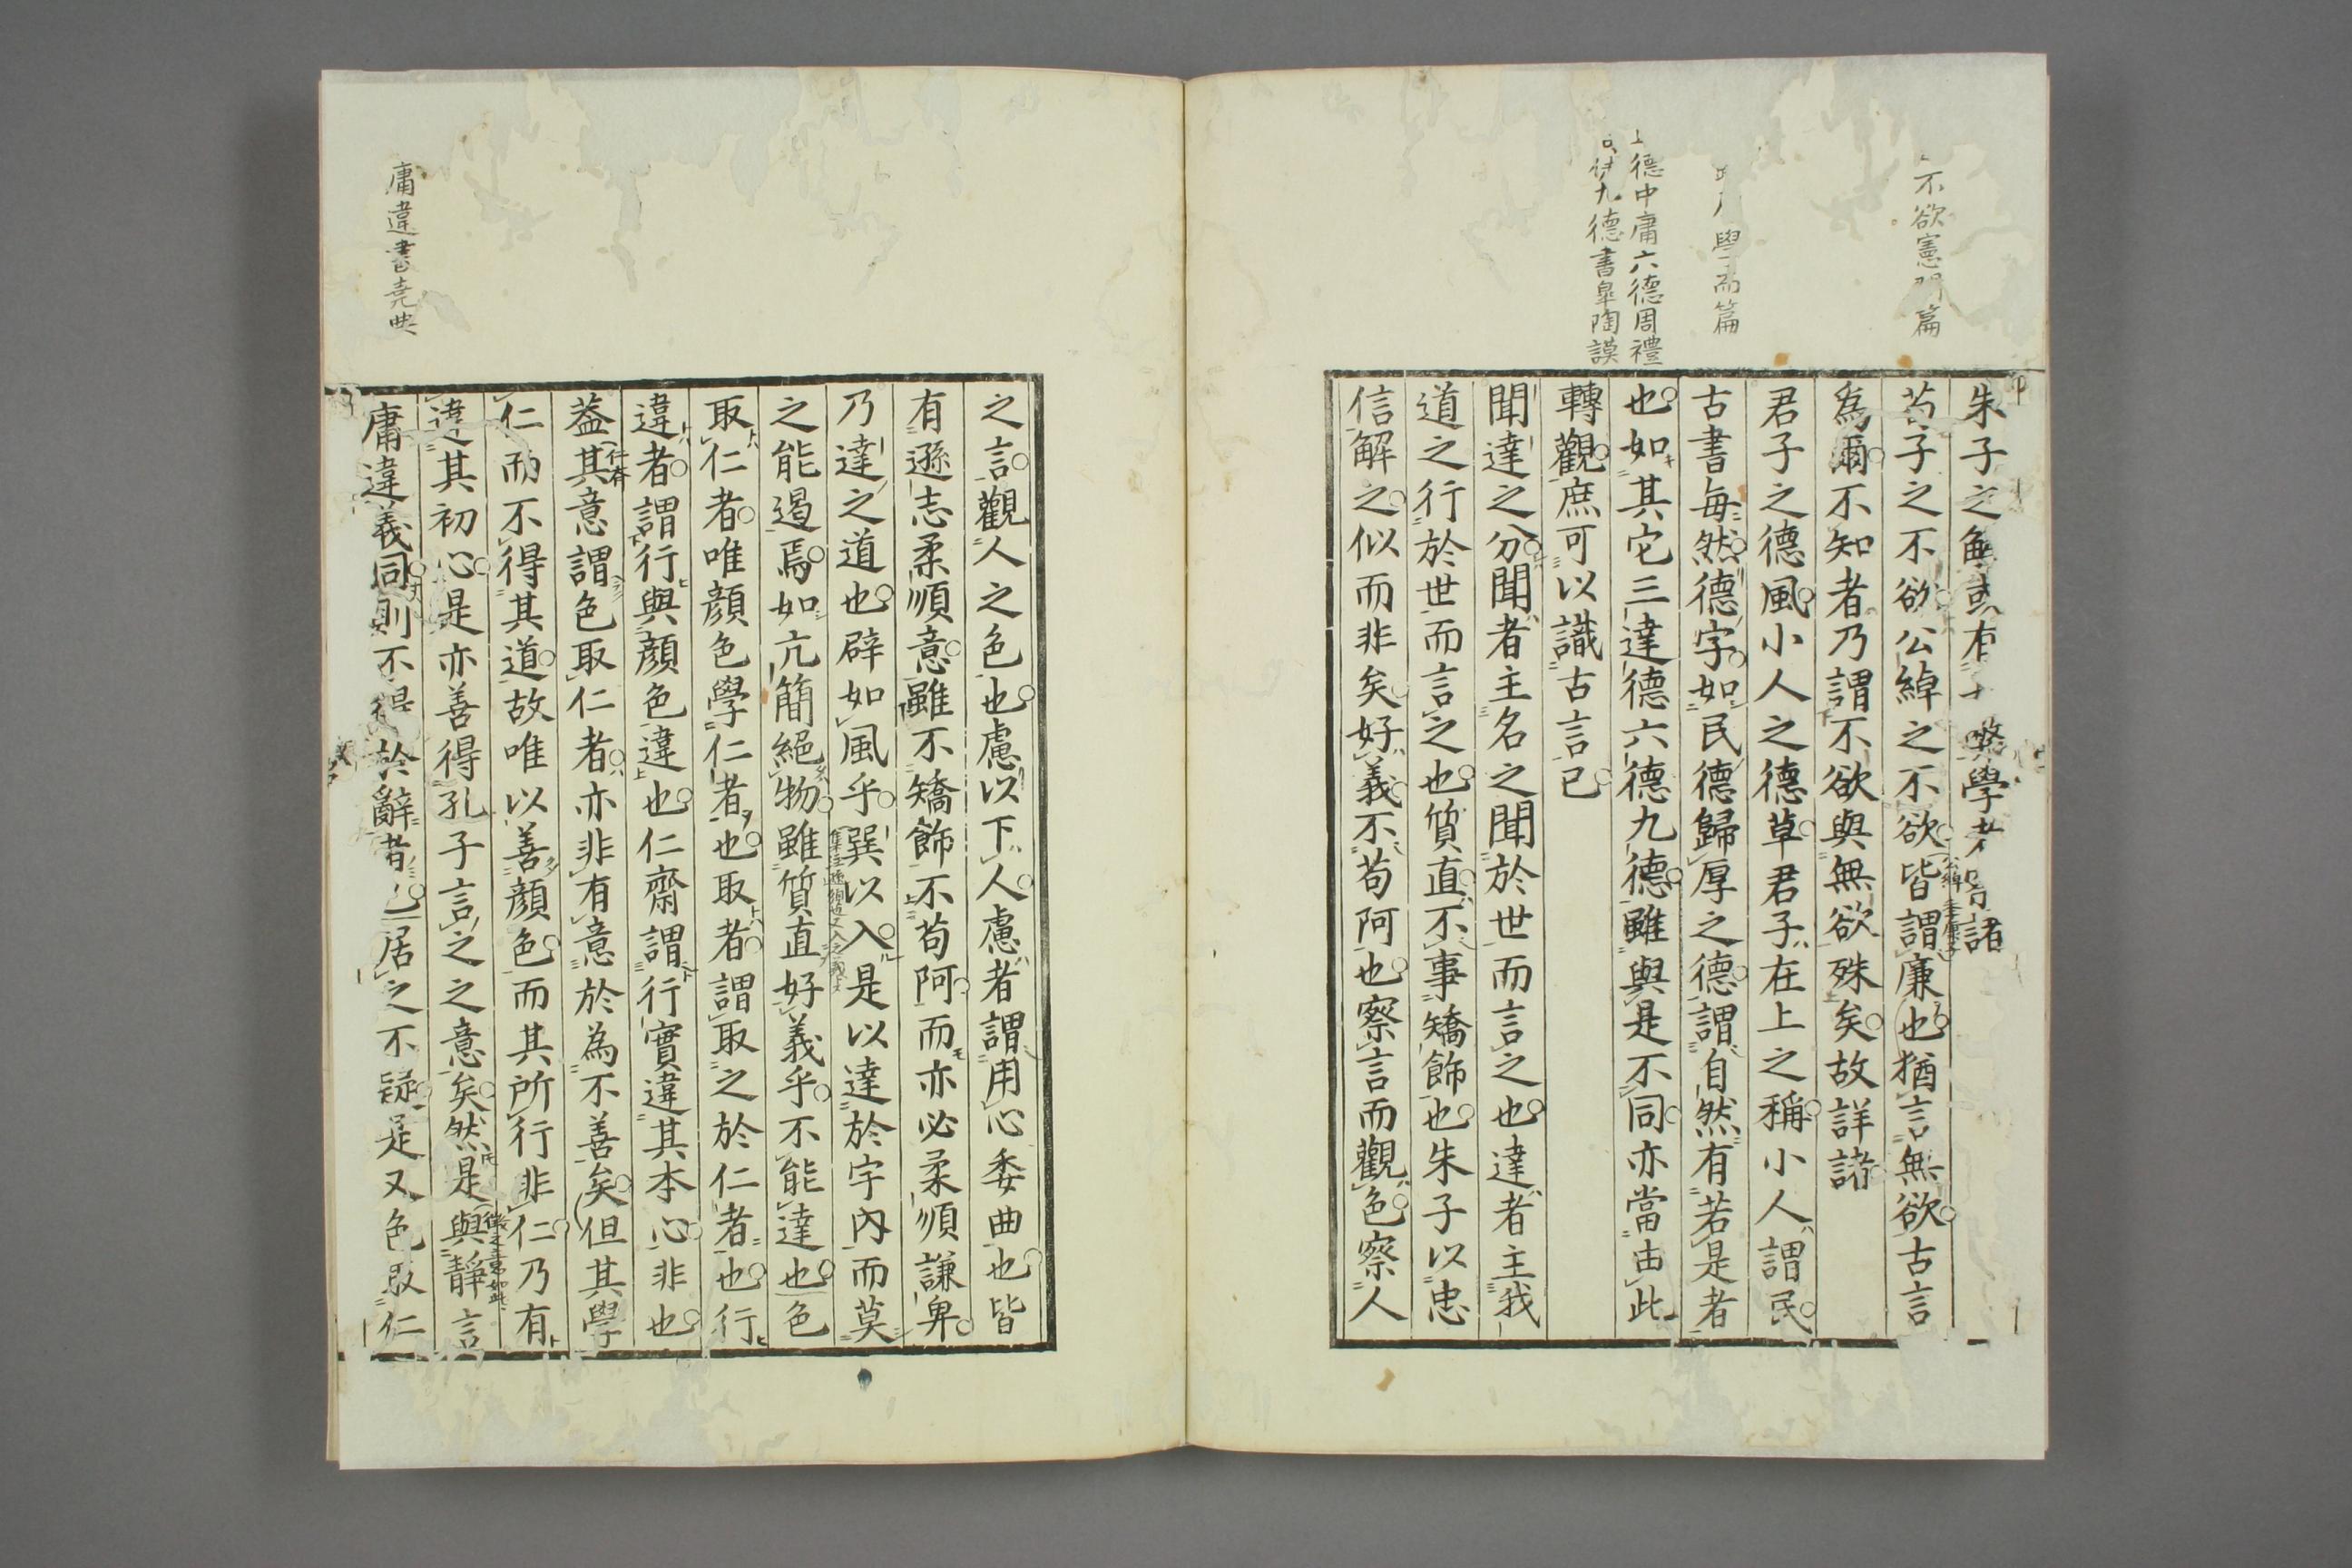 不欲憲問篇
學而篇
德中庸六德周禮
九德書皐陶謨
朱子之解
荀子之不欲公綽之不欲皆謂廉也猶言無欲古言
公綽
為爾不知者乃謂不欲與無欲殊矣故詳諸
君子之德風小人之德草君子在上之稱小人謂民
古書每然德字如民德歸厚之德謂自然有若是者
也如其它三達德六德九德雖與是不同亦當由此
轉觀庶可以識古言已
聞達之分聞者主名之聞於世而言之也達者主我
道之行於世而言之也質直不事矯飾也朱子以忠
信解之似而非矣好義不苟阿也察言而觀色察人
之言觀人之色也慮以下人慮者謂用心委曲也皆
有遜志柔順意雖不矯飾不苟阿而亦必柔順謙卑
乃達之道也辟如風乎巽以入是以達於宇內而莫
之能遏焉如亢簡絕物雖質直好義乎不能達也色
取仁者唯顏色學仁者也取者謂取之於仁者也行
違者謂行與顏色違也仁齋謂行實違其本心非也
蓋其意謂色取仁者亦非有意於為不善矣但其學
仁齋
仁而不得其道故唯以善顏色而其所行非仁乃有
違其初心是亦善得孔子言之之意矣然是與靜言
徵之意如此
庸違義同則不得於辭者也居之不疑是又色取仁
庸違書堯典